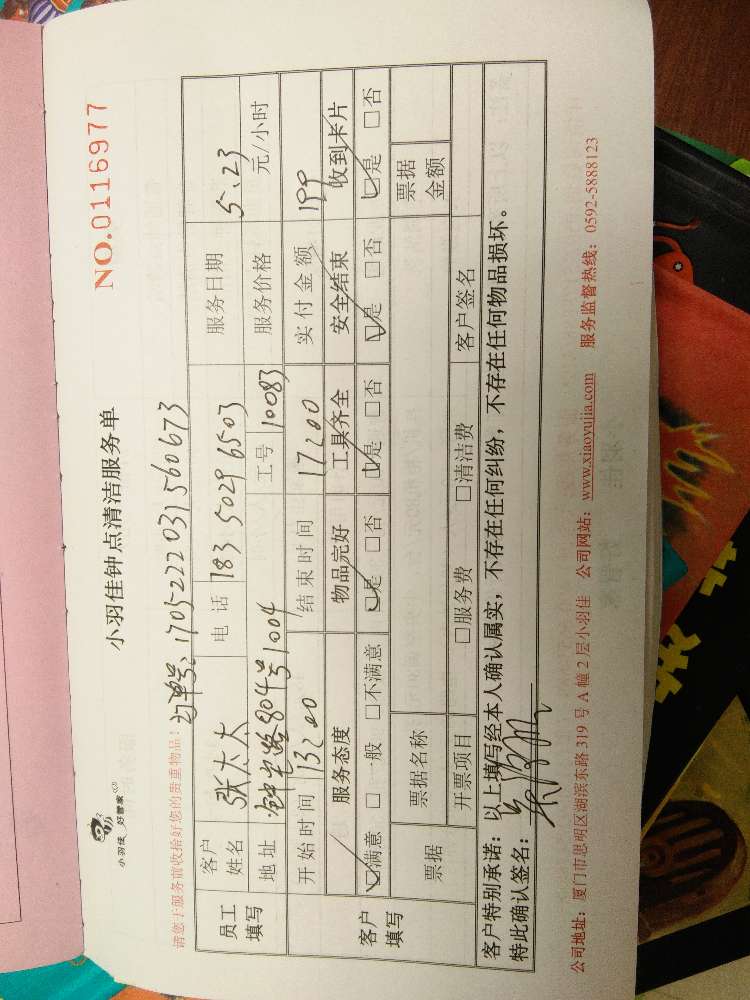 小羽佳 好管家
小羽佳钟点清洁服务单
NO.0116977
请您于服务前收拾好您的贵重物品:
订单号:170522203156067 3
员工填写
客户姓名 张太太 电话 183 5029 6503 服务日期 5.23
地址 804号1004 工号 10083 服务价格 元/小时
客户填写
开始时间 13:00 结束时间 17:00 实付金额 199
服务态度 物品完好 工具齐全 安全结束 收到卡片
☑满意 □一般 □不满意 ☑是 □否 ☑是 □否 ☑是 □否 ☑是 □否
票据 票据名称 票据金额
开票项目 □服务费 □清洁费 客户签名
客户特别承诺:以上填写经本人确认属实,不存在任何纠纷,不存在任何物品损坏。
特此确认签名:
公司地址:厦门市思明区湖滨东路 319 号 A 幢 2 层小羽佳 公司网站:www.xiaoyujia.com 服务监督热线:0592-5888123